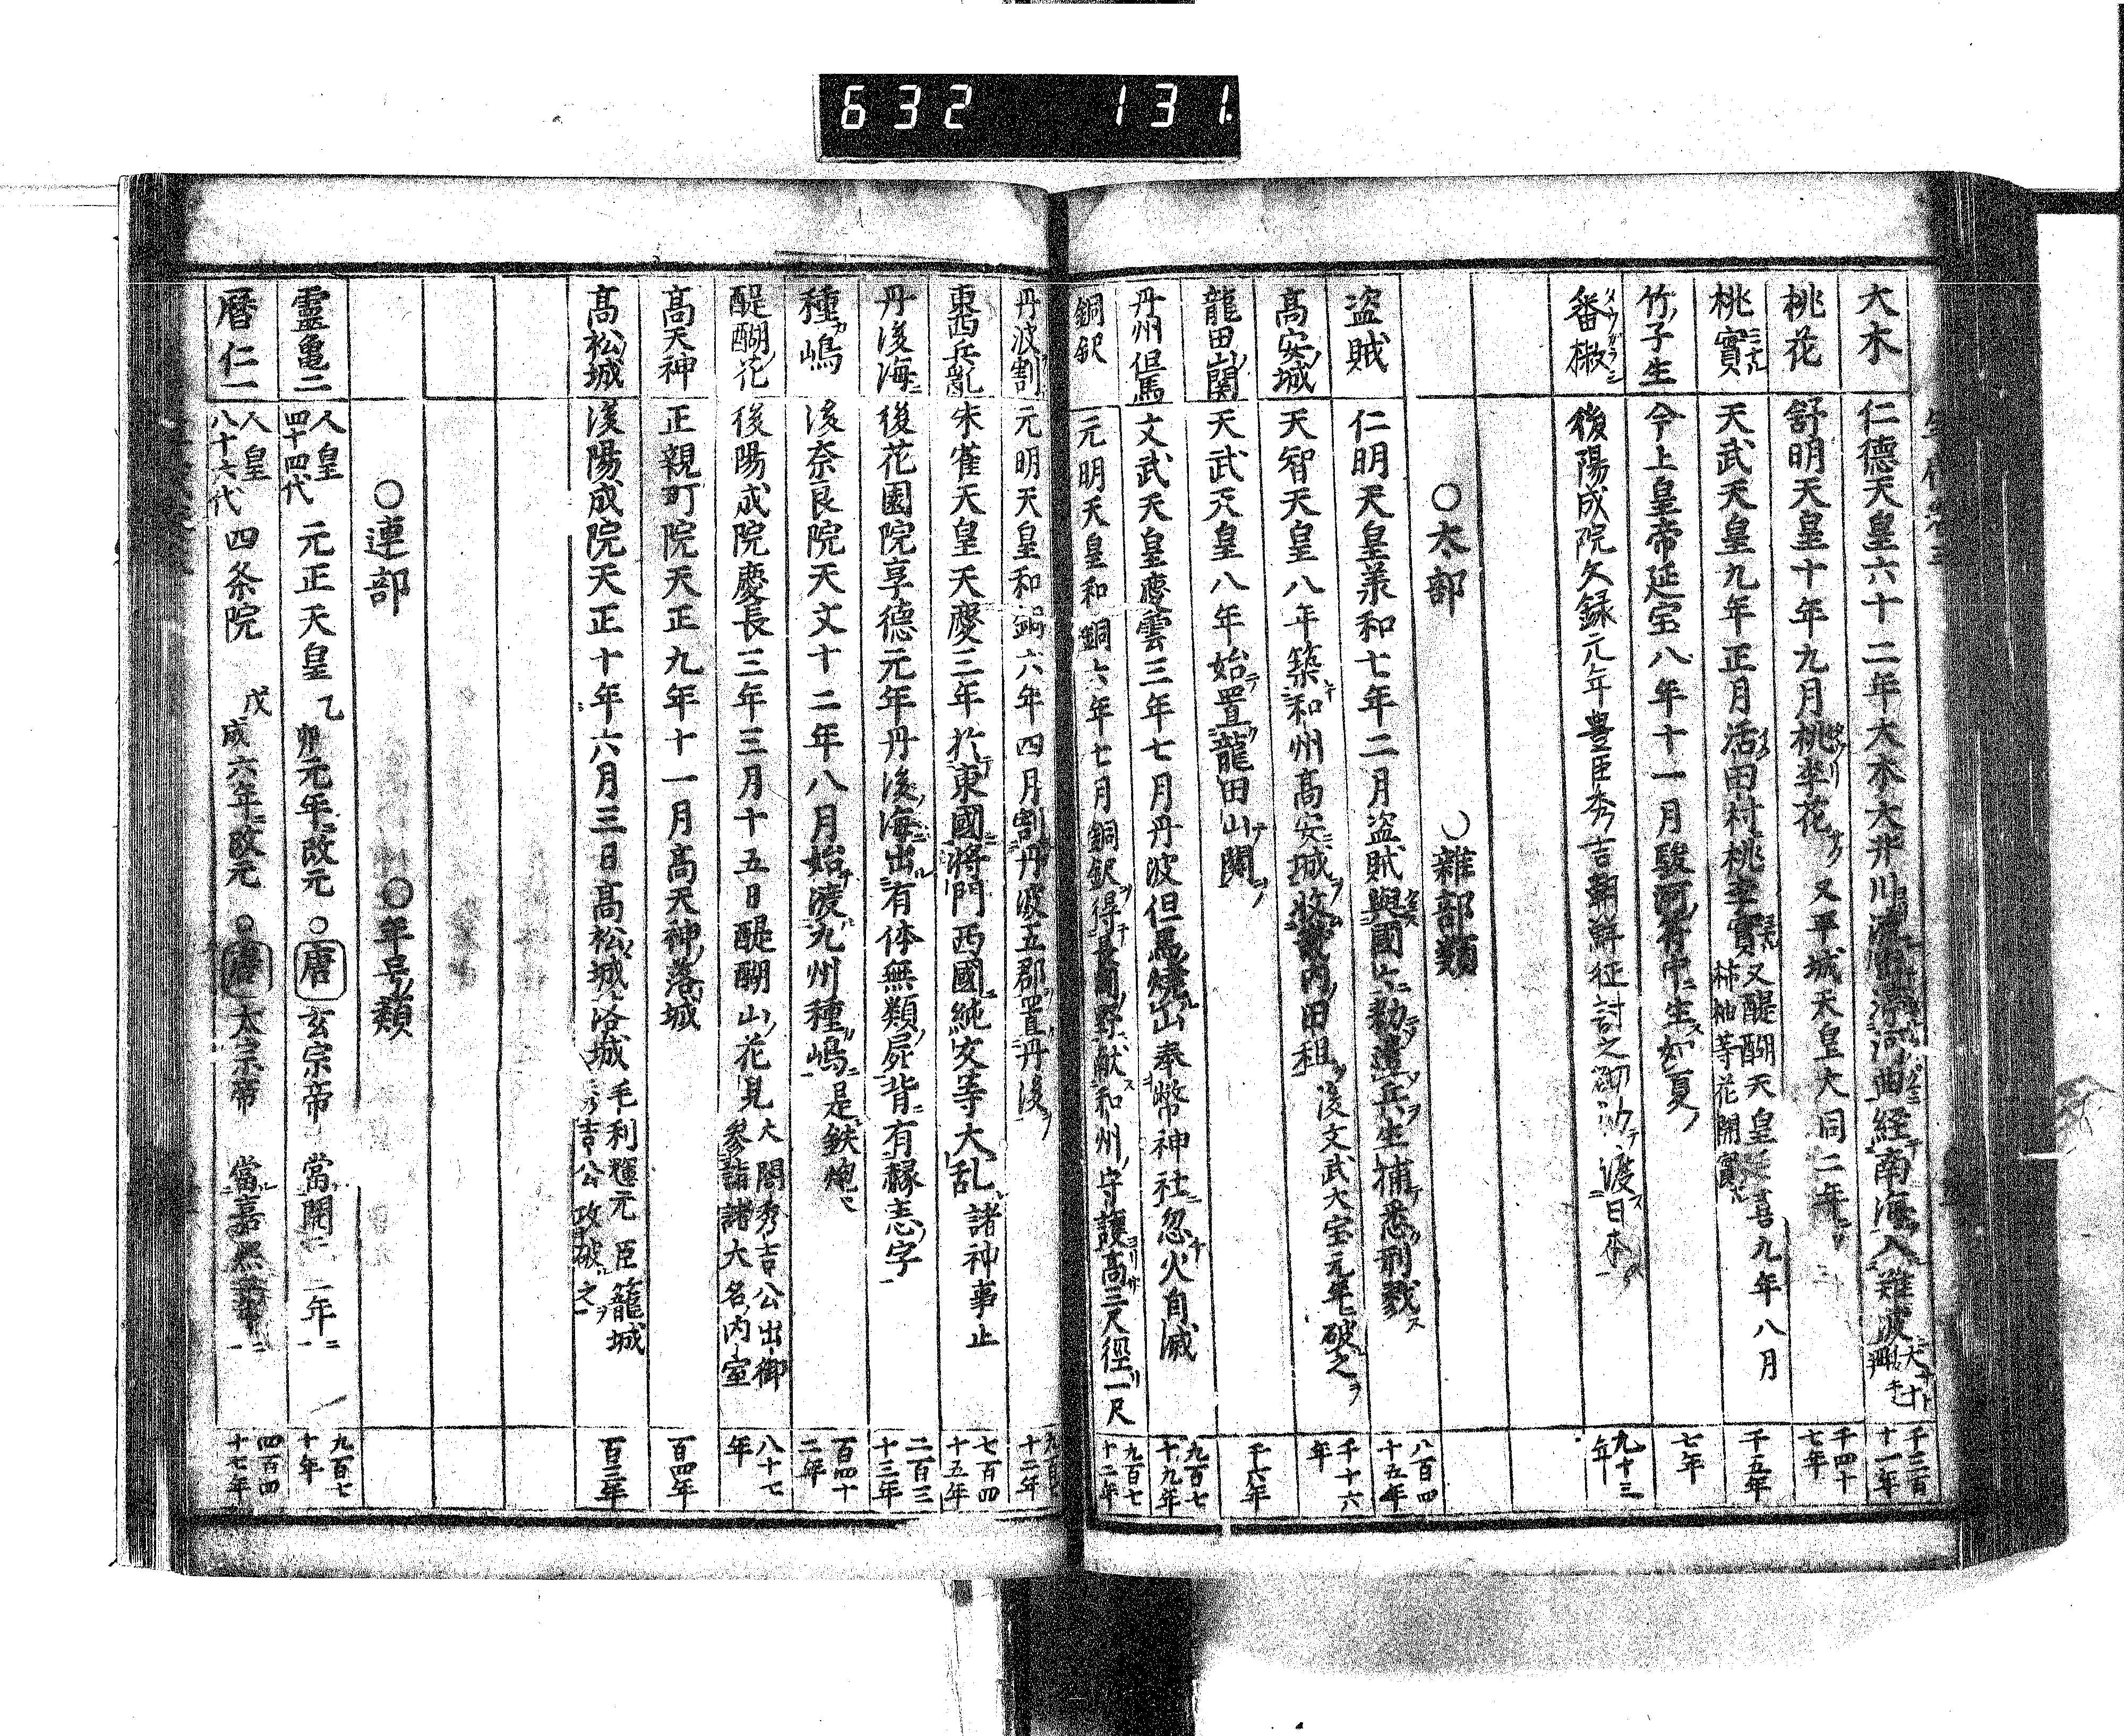 632 131.
大木 仁德天皇六十二年大木大井川 河曲経南海入難波 千三百十一年
桃花 舒明天皇十年九月桃李花 又平城天皇大同二年 千四十七年
桃實 天武天皇九年正月活田村桃李實 又醍醐天皇延喜九年八月 林柚等花開實 千五年
竹子生 今上皇帝延宝八年十一月駿河府中生如夏 七年
番椒 後陽成院文録元年豊臣秀吉朝鮮征討之砌 渡日本 九十三年
○太部 ○雜部類
盗賊 仁明天皇美和七年二月盗賊與國六勅遣兵生捕悉刑戮 八百四十五年
髙安城 天智天皇八年築和州髙安城收畿内田租 後文武大宝元年破之 千十六年
龍田山関 天武天皇八年始置龍田山関 千六年
丹州但馬 文武天皇慶雲三年七月丹波但馬燒山奉幣神社忽火自滅 九百七十九年
銅釵 元明天皇和銅六年七月銅釵得 献和州守護髙三尺徑一尺 九百七十二年
丹波割 元明天皇和銅六年四月割丹波五郡置丹後 九百七十二年
東西兵亂 朱雀天皇天慶三年於東國將門西國純友等大乱諸神事止 七百四十五年
丹後海 後花園院享德元年丹後海出有体無類屍背有縁恚字 二百三十三年
種嶋 後奈良院天文十二年八月始渡九州種嶋是鉄炮 百四十二年
醍醐花 後陽成院慶長三年三月十五日醍醐山花見 大閤秀吉公出御 参詣諸大名内室 八十七年
髙天神 正親町院天正九年十一月髙天神落城 百四年
髙松城 後陽成院天正十年六月三日髙松城落城 毛利輝元臣籠城 秀吉公攻破之 百三年
○連部 ○年号類
靈亀二 人皇四十四代 元正天皇 乙卯元年改元 ○唐 玄宗帝 當開二一年 九百七十年
暦仁一 人皇八十六代 四条院 戊戌六年改元 ○唐 太宗帝 當嘉熈 四百四十七年